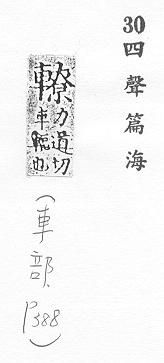 30四聲篇海
轑力道切
車輻也
(車部.P388)